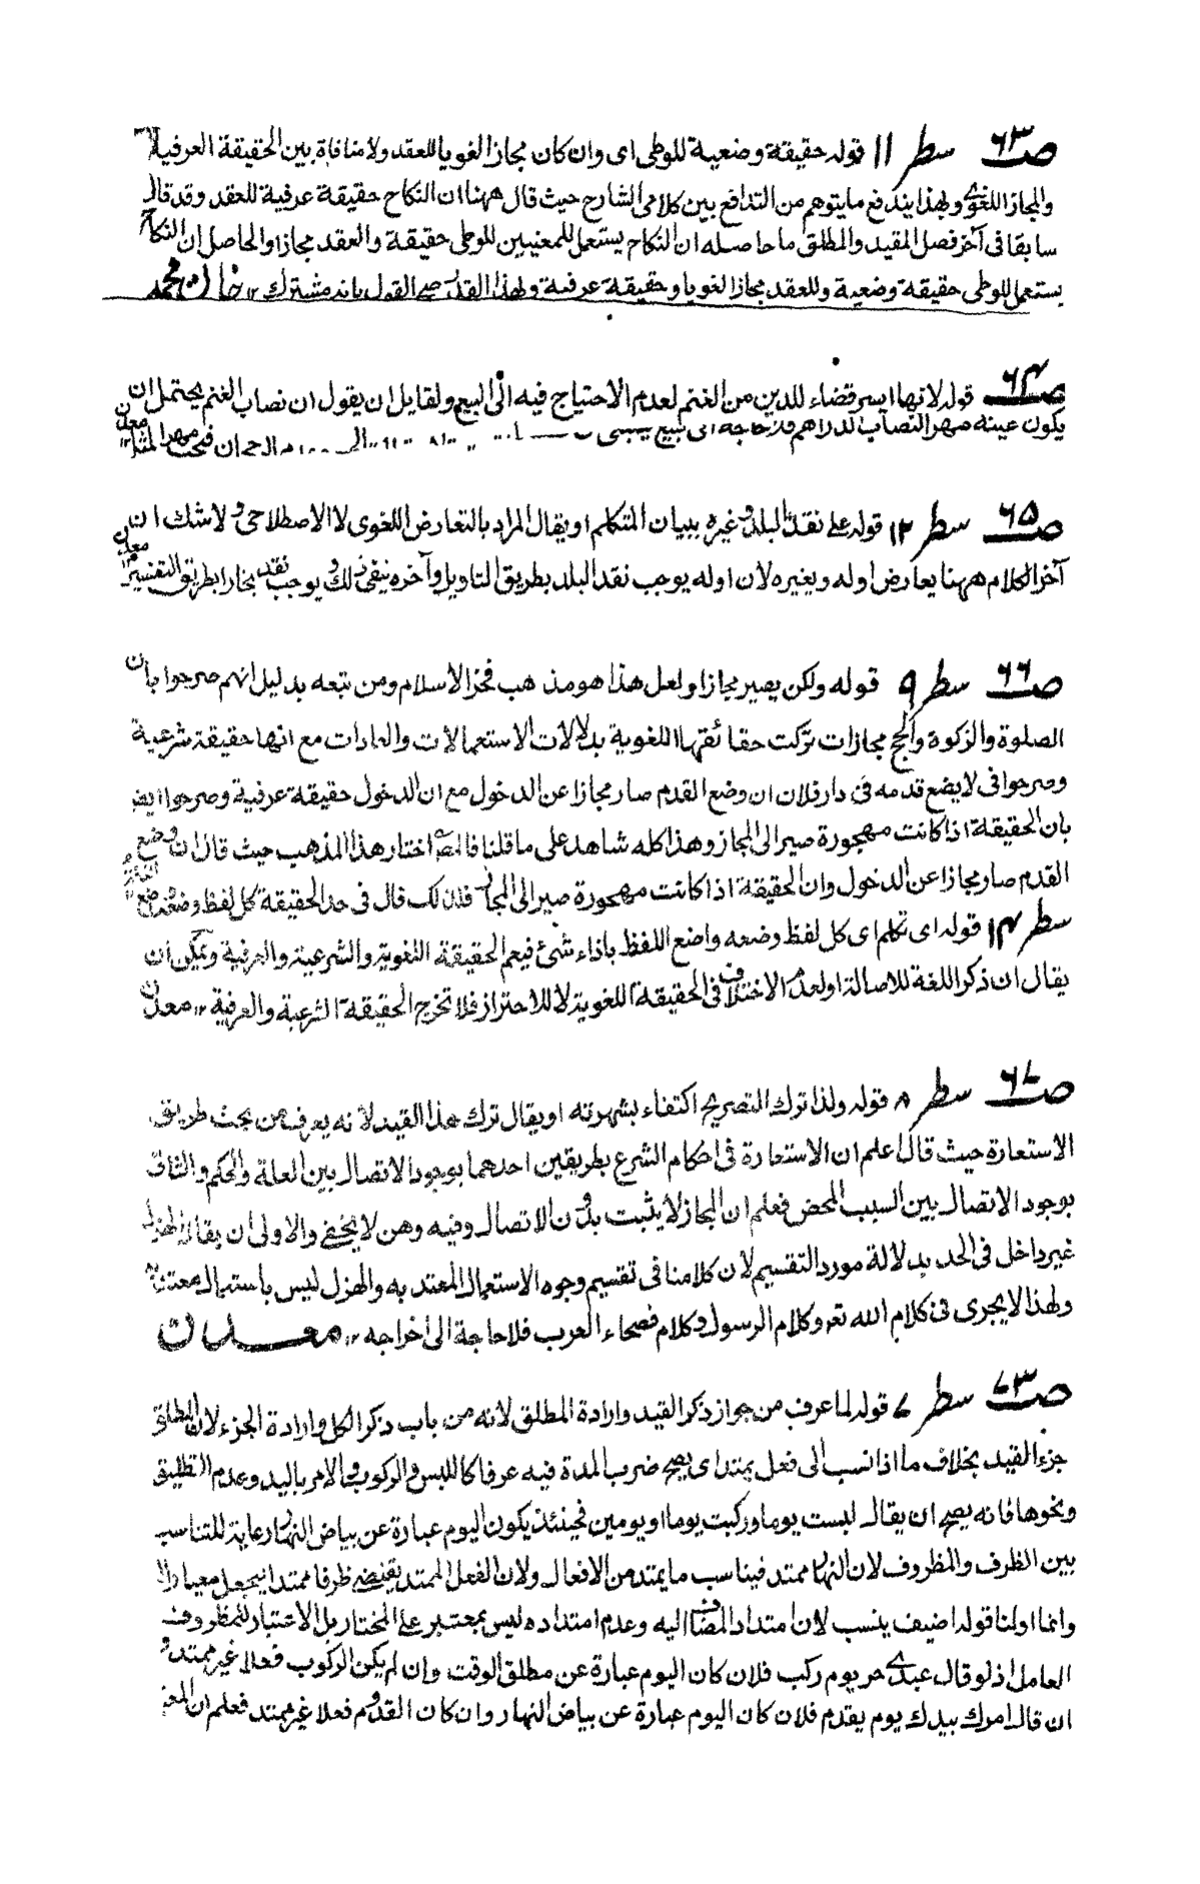 ص ٦٣ سطر ١١ قوله حقيقة وضعية للوطى اى وان كان مجازا لغويا للعقد ولا منافاة بين الحقيقة العرفية
والمجاز اللغوى وبهذا يندفع ما يتوهم من التدافع بين كلامى الشارح حيث قال ههنا ان النكاح حقيقة عرفية للعقد وقد قال
سابقا فى آخر فصل المقيد والمطلق ما حاصله ان النكاح يستعمل للمعنيين للوطى حقيقة والعقد مجازا والحاصل ان النكاح
يستعمل للوطى حقيقة وضعية وللعقد مجازا لغويا وحقيقة عرفية ولهذا القدر صح القول بانه مشترك ١٢ محمد
ص ٦٤ قوله لانها ايسر قضاء للدين من الغنم لعدم الاحتياج فيه الى البيع ولقايل ان يقول ان نصاب الغنم يحتمل ان
يكون عينه مهر النصاب الدراهم فلا حاجة الى البيع
ص ٦٥ سطر ١٢ قوله على نقد البلد وغيره ببيان المتكلم او يقال المراد بالتعارض اللغوى لا الاصطلاحى ولا شك ان
آخر الكلام ههنا يعارض اوله ويغيره لان اوله يوجب نقد البلد بطريق التاويل وآخره ينفى ذلك ويوجب نقد بخارا بطريق التفسير ١٢ معدن
ص ٦٦ سطر ٩ قوله ولكن يصير مجازا ولعل هذا هو مذهب فخر الاسلام ومن تبعه بدليل انهم صرحوا بان
الصلوة والزكوة والحج مجازات تركت حقائقها اللغوية بدلالات الاستعمالات والعادات مع انها حقيقة شرعية
وصرحوا فى لا يضع قدمه فى دار فلان ان وضع القدم صار مجازا عن الدخول مع ان الدخول حقيقة عرفية وصرحوا ايض
بان الحقيقة اذا كانت مهجورة صير الى المجاز وهذا كله شاهد على ما قلنا فالمصـ اختار هذا المذهب حيث قال ان وضع
القدم صار مجازا عن الدخول وان الحقيقة اذا كانت مهجورة صير الى المجاز فلذلك قال فى حد الحقيقة كل لفظ وضعه واضع
سطر ١٤ قوله اى تكلم اى كل لفظ وضعه واضع اللفظ باذاء شئ فيعم الحقيقة اللغوية والشرعية والعرفية ويمكن ان
يقال ان ذكر اللغة للاصالة او لعدم الاختلاف فى الحقيقة اللغوية لا للاحتراز فلا تخرج الحقيقة الشرعية والعرفية ١٢ معدن
ص ٦٧ سطر ٨ قوله ولذا ترك التصريح اكتفاء بشهرته او يقال ترك هذا القيد لانه يعرف من بحث طريق
الاستعارة حيث قال اعلم ان الاستعارة فى احكام الشرع بطريقين احدهما بوجود الاتصال بين العلة والحكم والثانى
بوجود الاتصال بين السبب المحض فعلم ان المجاز لا يثبت بدون الاتصال وفيه وهن لا يخفى والاولى ان يقال الهزل
غير داخل فى الحد بدلالة مورد التقسيم لان كلامنا فى تقسيم وجوه الاستعمال المعتد به والهزل ليس باستعمال معتد به
ولهذا لا يجرى فى كلام الله تعـ وكلام الرسول وكلام فصحاء العرب فلا حاجة الى اخراجه ١٢ معدن
ص ٧٣ سطر ٧ قوله لما عرف من جواز ذكر القيد وارادة المطلق لانه من باب ذكر الكل وارادة الجزء لان المطلق
جزء القيد بخلاف ما اذا نسب الى فعل يمتد اى يصح ضرب المدة فيه عرفا كاللبس والركوب والامر باليد وعدم التطليق
ونحوها فانه يصح ان يقال لبست يوما وركبت يوما او يومين فحينئذ يكون اليوم عبارة عن بياض النهار رعاية للتناسب
بين الظرف والمظروف لان النهار ممتد فيناسب ما يمتد من الافعال ولان الفعل الممتد يقتضى ظرفا ممتدا ليجعل معيارا
وانما اولنا قوله اضيف بنسب لان امتداد المضاف اليه وعدم امتداده ليس بمعتبر على المختار بل الاعتبار للمظروف
العامل اذ لو قال عبدى حر يوم ركب فلان كان اليوم عبارة عن مطلق الوقت وان لم يكن الركوب فعلا غير ممتد و
ان قال امرك بيدك يوم يقدم فلان كان اليوم عبارة عن بياض النهار وان كان القدوم فعلا غير ممتد فعلم ان المعتبر